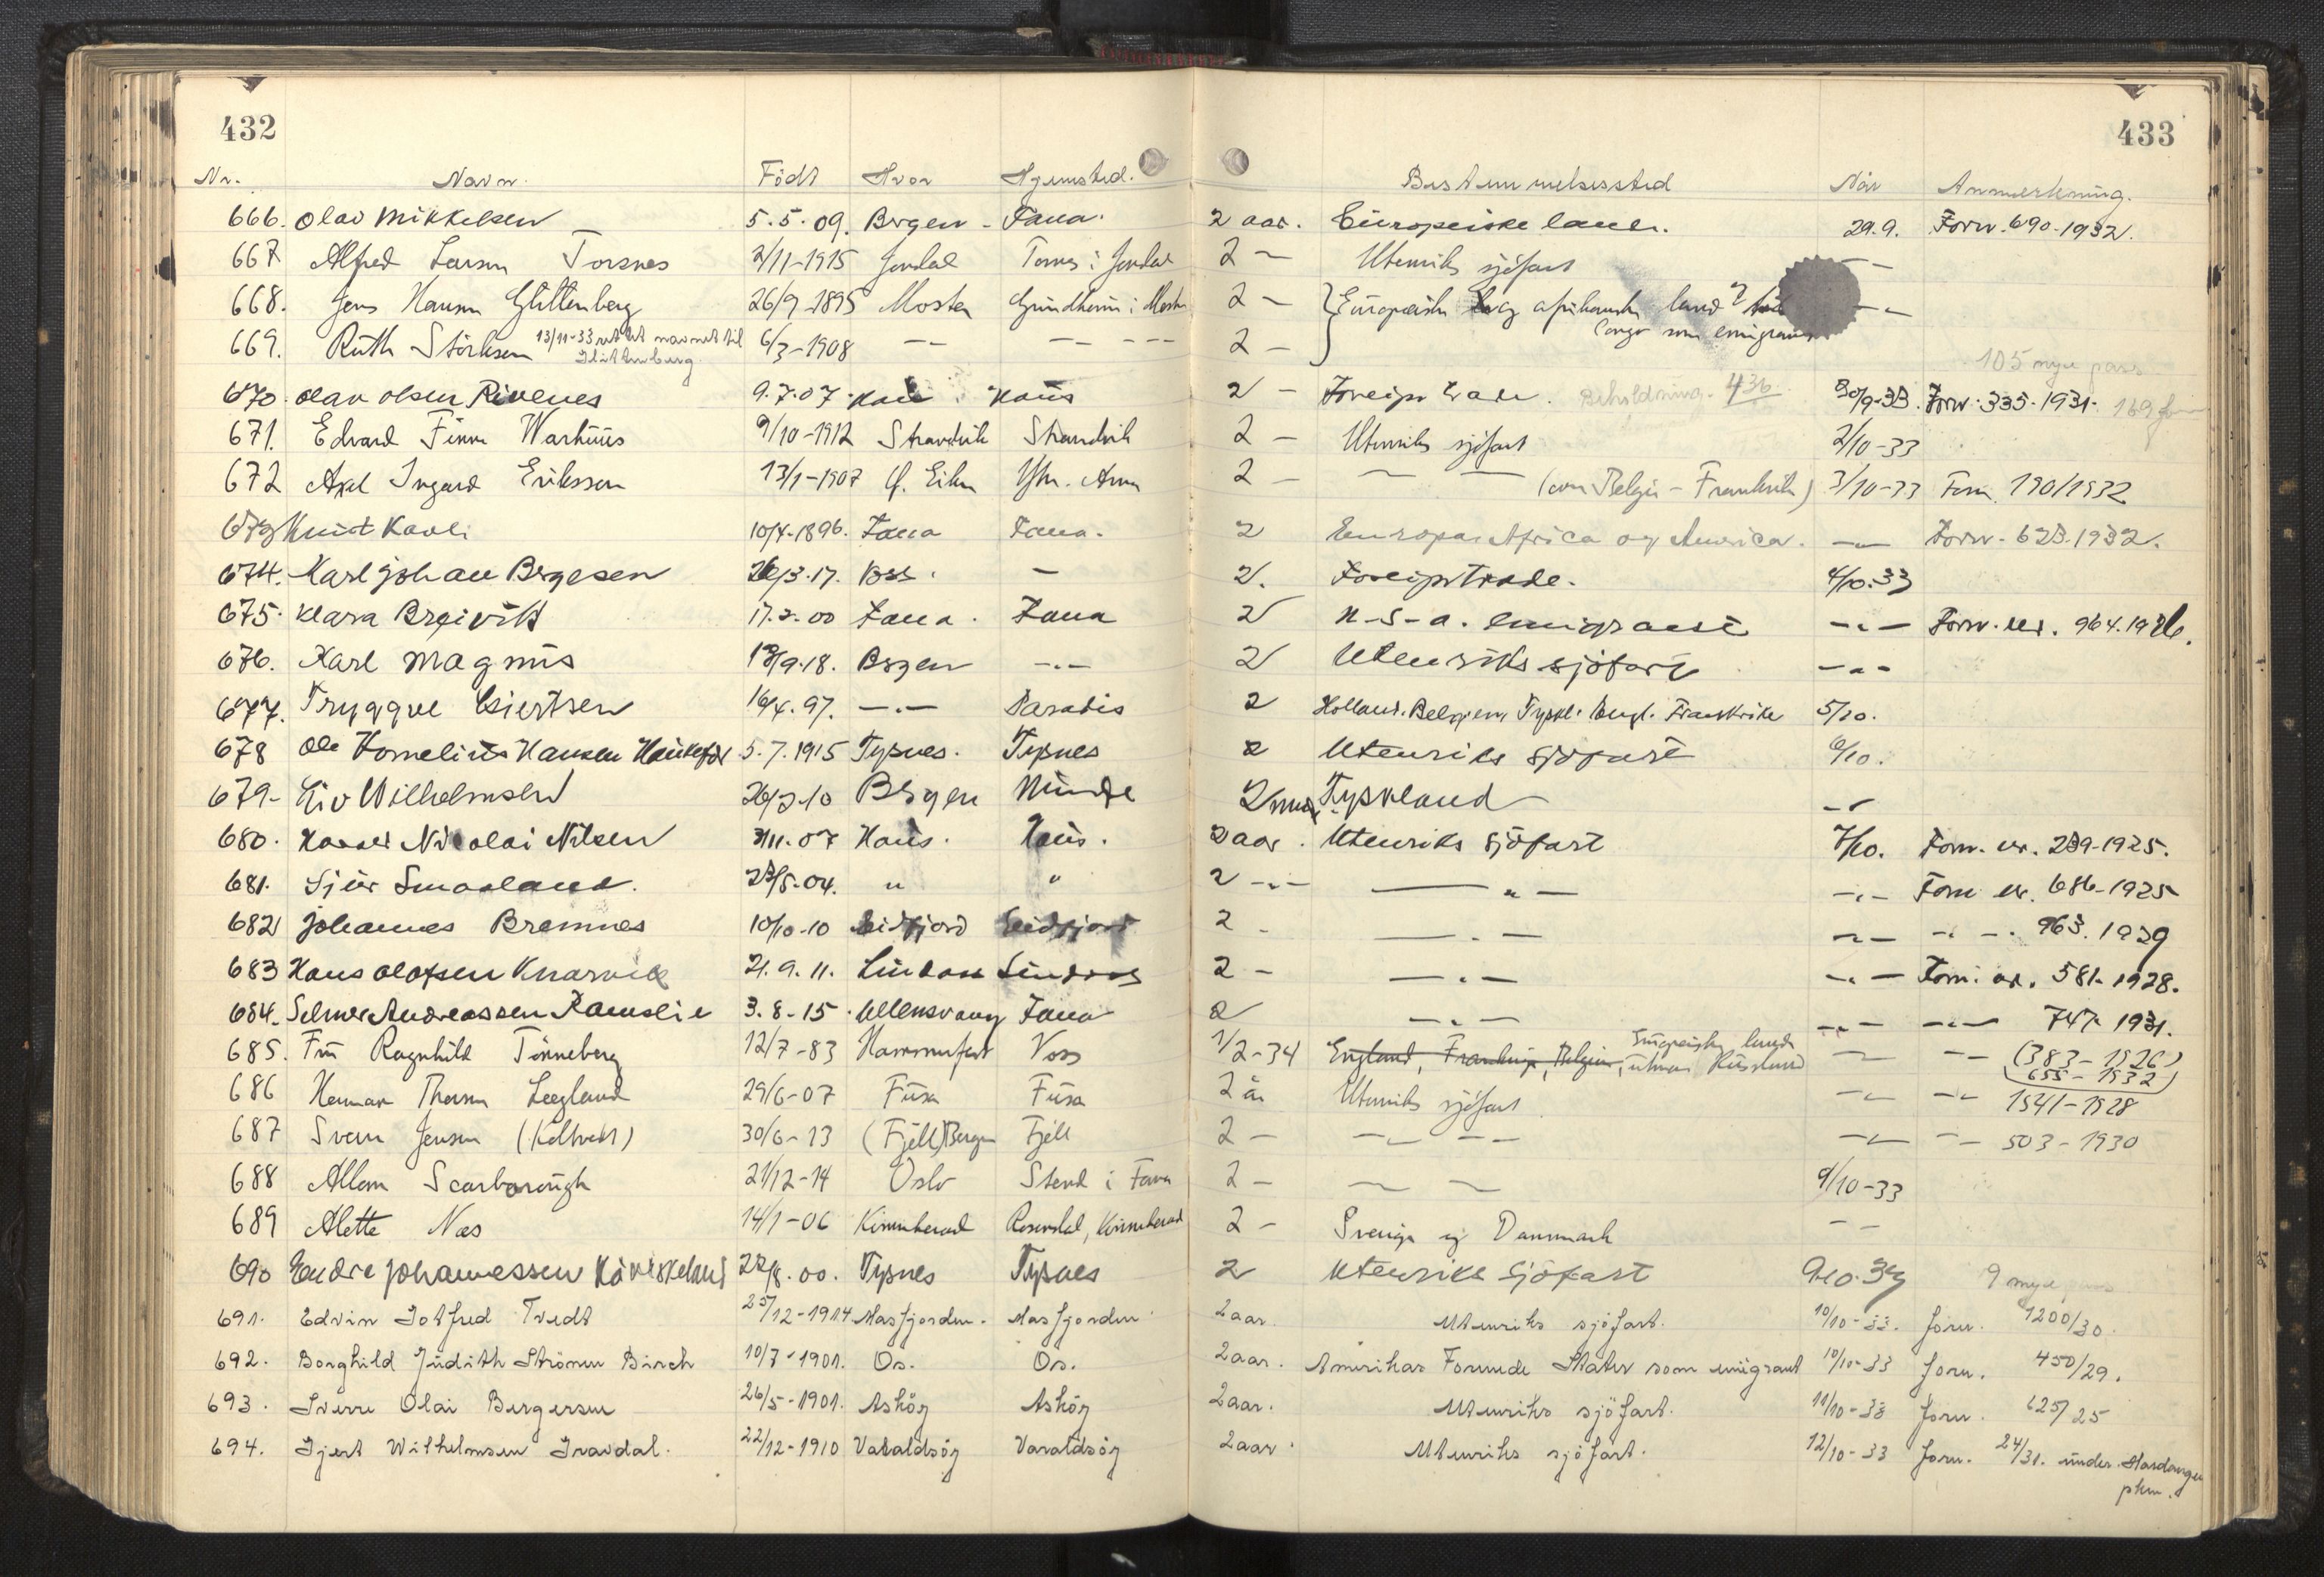 432
433
Nr. Navn. Födt Hvor Hjemsted. Bestemmelsessted Når Anmerkning.
666. Olav Mikkelsen 5.5.09. Brgen - Fana. 2 aar. Europeiske land. 29.9. Forn. 690-1932.
667 Alfred Larsen Torsnes 2/11-1915 Jondal Torsnes i Jondal 2 - Utenriks sjöfart - -
668. Jens Hansen Glittenberg 26/9-1895 Moster Grindheim i Moster 2 - } Europeiske og afrikanske land - -
669. Ruth Störksen 13/11-33 rettet navnet til Glittenberg 6/3-1908 - - - - - - 2 - Congo som emigrant
105 nye pass
670. Olav Olsen Rivenes 9.7.07 Haus. Haus 2 - Foreign trade. Beholdning. 436 30/9-33. Forn. 335-1931. 169
671. Edvard Finne Warhuus 9/10-1912 Strandvik Strandvik 2 - Utenriks sjöfart 2/10-33
672 Axel Ingvard Eriksson 13/1-1907 2 - - - (om Belgia - Frankrike) 3/10-33 Forn. 190/1932
673 Knut Kavli 10/4-1896. Fana Fana. 2 Europa Africa og America. -"- Forn. 623.1932.
674. Karl Johan Brgesen 26/3-17. Voss. - 2. Foreign trade. 4/10.33
675. Klara Brgivik 17.2.00 Fana. Fana 2 U-S-A. emigrant -"- Forn. nr. 964.1926.
676. Karl Magnus 13/9.18. Brgen -"- 2 Utenriks sjöfart -"-
677. Tryggve Giertsen 16/4.97. -"- Paradis 2 Holland. Belgien, Tyskl. Engl. Frankrike 5/10.
678 Ole Kornelius Hansen Haukefær 5.7.1915 Tysnes. Tysnes 2 Utenriks sjöfart 6/10.
679- Liv Wilhelmsen 26/2-10 Brgen Minde 2 mnd. Tyskland -"-
680. Nicolai Nilsen 3/11.07 Haus. Haus. 2 aar. Utenriks sjöfart 7/10. Forn. nr. 239-1925.
681. Sjur Smaaland. 23/5-04. " " 2 -"- -"- -"- Forn nr. 686-1925
682 Johannes Bremnes 10/10-10 Eidfjord Eidfjord 2 - -"- -"- -"- 963. 1929
683 Hans Olafsen Knarvik 21.9.11. Lindaas Lindaas 2 - -"- -"- Forn. nr. 581-1928.
684. Selmer Andreassen Ramslie 3.8-15. Ullensvang Fana 2 -"- -"- -"- 747- 1931.
685. Fru Ragnhild Tönneberg 12/7-83 Hammerfest Voss 1/2-34 England, Frankrige, Belgien, Europeiske lande utenom Russland -"- -"- (383-1926)
655-1932)
686 Herman Thorsen Legland 29/6-07 Fusa Fusa 2 år Utenriks sjöfart. -"- -"- 1541-1928
687 Svein Jensen (Koltveit) 30/6-13 (Fjell) Bergen Fjell 2 - -"- -"- -"- -"- 503-1930
688 Allan Scarborough 21/12-14 Oslo Stend i Fana 2 - - - 9/10-33
689 Alette Næs 14/1-06 Kvinnherad Rosendal, Kvinnherad 2 - Sverige og Danmark - -
690 Endre Johannessen 22/8.00. Tysnes Tysnes 2 Utenriks sjöfart 9.10.33 9 nye pass
691. Edvin Gotfred Tvedt 25/12-1914 Masfjorden. Masfjorden. 2 aar. Utenriks sjöfart. 10/10-33. Forn. 1200/30.
692. Borghild Judith Strömen Birch 10/7-1901. Os. Os. 2 aar. Amerikas Forenede Stater som emigrant 10/10-33 forn. 450/29.
693. Sverre Olai Bergersen 26/5-1901. Asköy Asköy 2 aar. Utenriks sjöfart. 11/10-33 forn. 625/25
694. Gjert Wilhelmsen Travdal. 22/12-1910 Varaldsöy Varaldsöy 2 aar. Utenriks sjöfart. 12/10-33 forn. 24/31. under Hardanger
pkm.